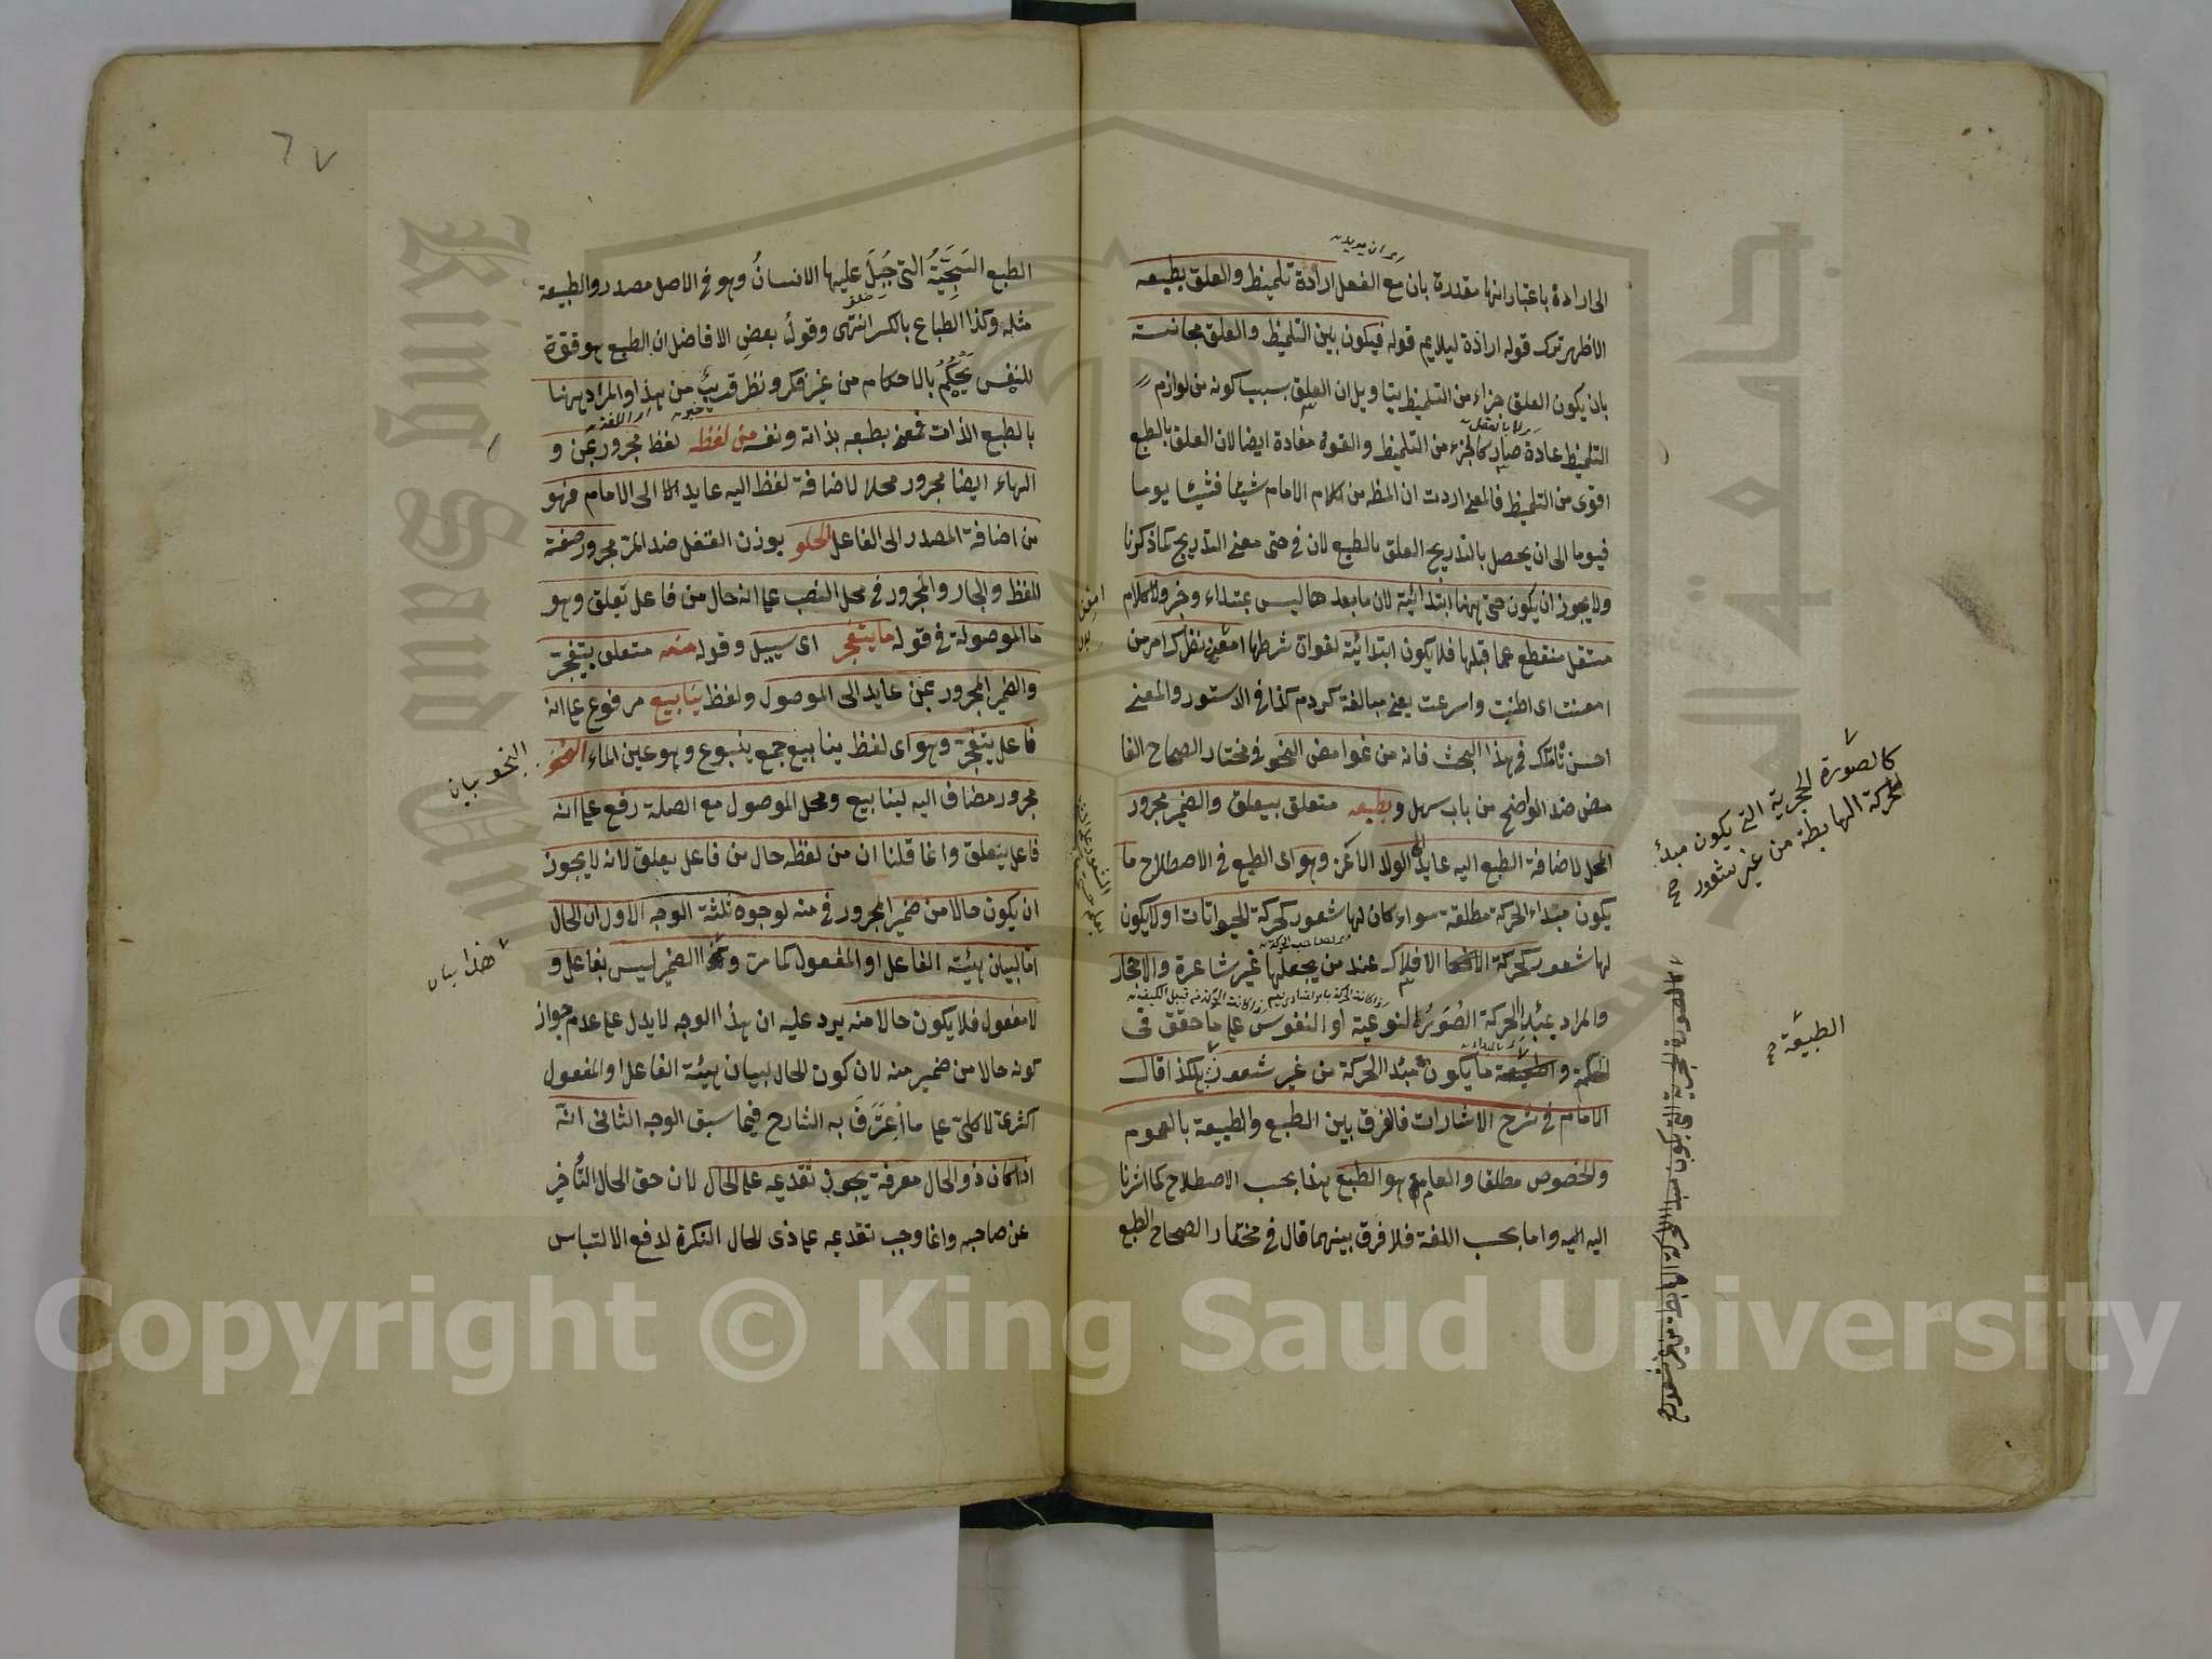 الى ارادة باعتبار انها مقدرة بان مع الفعل ارادة تلميظ والعلق بطبيعه
الاظهر ترك قوله ارادة ليلايم قوله فيكون بين التلميظ والعلق مجانسة
بان يكون العلق جزاء من التلميظ بتاويل ان العلق بسبب كونه من لوازم
التلميظ عادة صار كالجزء من التلميظ والقوة مفادة ايضا لان العلق بالطبع
اقوى من التلميظ فالمعنى اردت ان المظه من كلام الامام شيئا فشيئا يوما
فيوما الى ان يحصل بالتدريج العلق بالطبع لان في حتى معنى التدريج كما ذكرنا
ولا يجوز ان يكون حتى ههنا ابتدائية لان ما بعدها ليس بمبتداء وخبر ولا كلام
مستقل منقطع عما قبلها فلا يكون ابتدائية لفوات شرطها امعن نظرك امر من
امعنت اى اطنبت واسرعت يعنى مبالغة كردم كذا في الاستور والمعنى
احسن تاملك في هذا البحث فانه من غوامض النحو في مختار الصحاح الغا
مض ضد الواضح من باب سهل وبطبعه متعلق بيعلق والضمير مجرور
المحل لاضافة الطبع اليه عايد الى الولد الاعز وهو اى الطبع في الاصطلاح ما
يكون مبداء الحركة مطلقة سواء كان لها شعور كحركة الحيوانات او لا يكون
لها شعور كحركة الافلاك عند من يجعلها غير شاعرة والاحجار
والمراد بمبدأ الحركة الصُوَرُ النوعية او النفوس على ما حقق في
الحكمة والطبيعة ما يكون مبدا الحركة من غير شعور هكذا قال
الامام في شرح الاشارات فالفرق بين الطبع والطبيعة بالعموم
والخصوص مطلقا والعام هو الطبع هذا بحسب الاصطلاح كما اشرنا
اليه اليه واما بحسب اللغة فلا فرق بينهما قال في مختار الصحاح الطبع
كالصورة الحجرية التى يكون مبدأ
لحركة الهابطة من غير شعور صح
الطبيعة صح
كالصورة الحجرية التى يكون مبدا لحركة الهابطة من غير شعور صح
٦٧
الطبع السَجِيَّةُ التى جُبِلَ عليها الانسانُ وهو في الاصل مصدر والطبيعة
مثله وكذا الطباع بالكسر انتهى وقولُ بعضِ الافاضل ان الطبع هو قوة
للنفس يَحْكُمُ بالاحكام من غير فكر ونظر قريبٌ من هذا والمراد ههنا
بالطبع الذات فمعنى بطبعه بذاته ونفسه من لفظه لفظ مجرور بمن و
الهاء ايضا مجرور محلا لاضافة لفظ اليه عايد الى الامام فهو
من اضافة المصدر الى الفاعل الحلو بوزن القفل ضد المر مجرور صفة
للفظ والجار والمجرور في محل النصب على انه حال من فاعل تعلق وهو
ما الموصولة في قوله ما يتفجر اى يسيل وقوله منه متعلق بيتفجر
والضمير المجرور بمن عايد الى الموصول ولفظ ينابيع مرفوع على انه
فاعل يتفجر وهو اى لفظ ينابيع جمع ينبوع وهو عين الماء النحو
مجرور مضاف اليه لينابيع ومحل الموصول مع الصلة رفع على انه
فاعل يتعلق وانما قلنا ان من لفظه حال من فاعل يعلق لانه لا يجوز
ان يكون حالا من ضمير المجرور في منه لوجوه ثلثة الوجه الاول ان الحال
اما لبيان هيئة الفاعل او المفعول كما مر وهذا الضمير ليس بفاعل و
لا مفعول فلا يكون حالا منه يرد عليه ان هذا الوجه لا يدل على عدم جواز
كونه حالا من ضمير منه لان كون الحال لبيان هيئة الفاعل او المفعول
اكثرى لا كلى على ما اُعتَرَفَ به الشارح فيما سبق الوجه الثانى انه
اذا كان ذو الحال معرفة يجوز تقديمه على الحال لان حق الحال التأخير
عن صاحبه وانما وجب تقديمه على ذى الحال النكرة لدفع الالتباس
النحو بيان
هذا بيان
جامعة الملك سعود
King Saud University
1957
Copyright © King Saud University